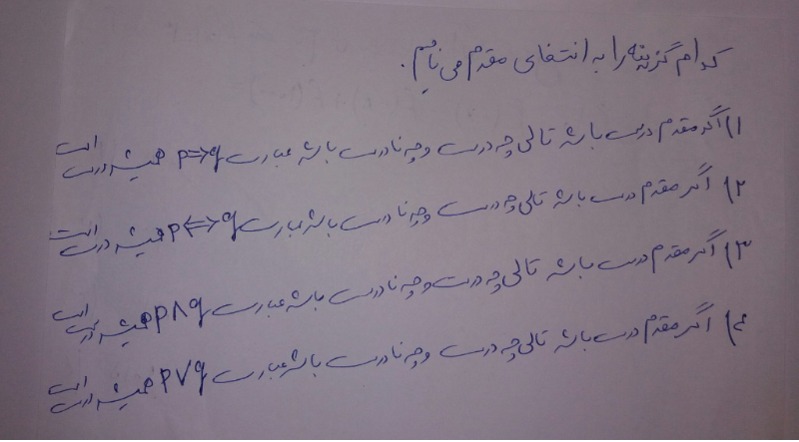 کدام گزینه را به انتفای مقدم می نامیم.
۱) اگر مقدم درست باشد تالی چه درست و چه نادرست باشد عبارت p=>q همیشه درست است
۲) اگر مقدم درست باشد تالی چه درست و چه نادرست باشد عبارت p<=>q همیشه درست است
۳) اگر مقدم درست باشد تالی چه درست و چه نادرست باشد عبارت p∧q همیشه درست است
۴) اگر مقدم درست باشد تالی چه درست و چه نادرست باشد عبارت p∨q همیشه درست است